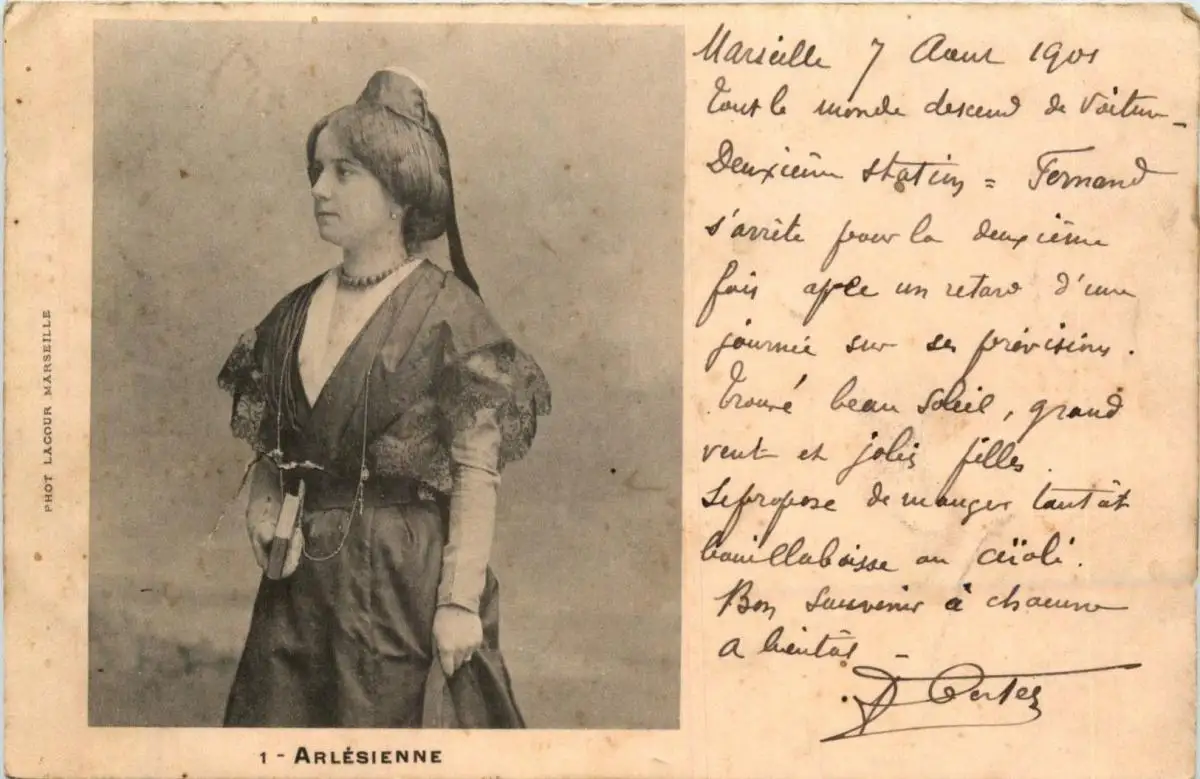 Marseille 7 Aout 1901
Tout le monde descend de Voiture_
Deuxième station = Fernand
s'arrête pour la deuxième
fois après un retard d'une
journée sur ses prévisions.
Trouvé beau Soleil, grand
vent et jolies filles.
Se propose de manger tantôt
bouillabaisse ou aïoli.
Bon souvenir à chacune
a bientôt –
PHOT LACOUR MARSEILLE
1 - ARLÉSIENNE